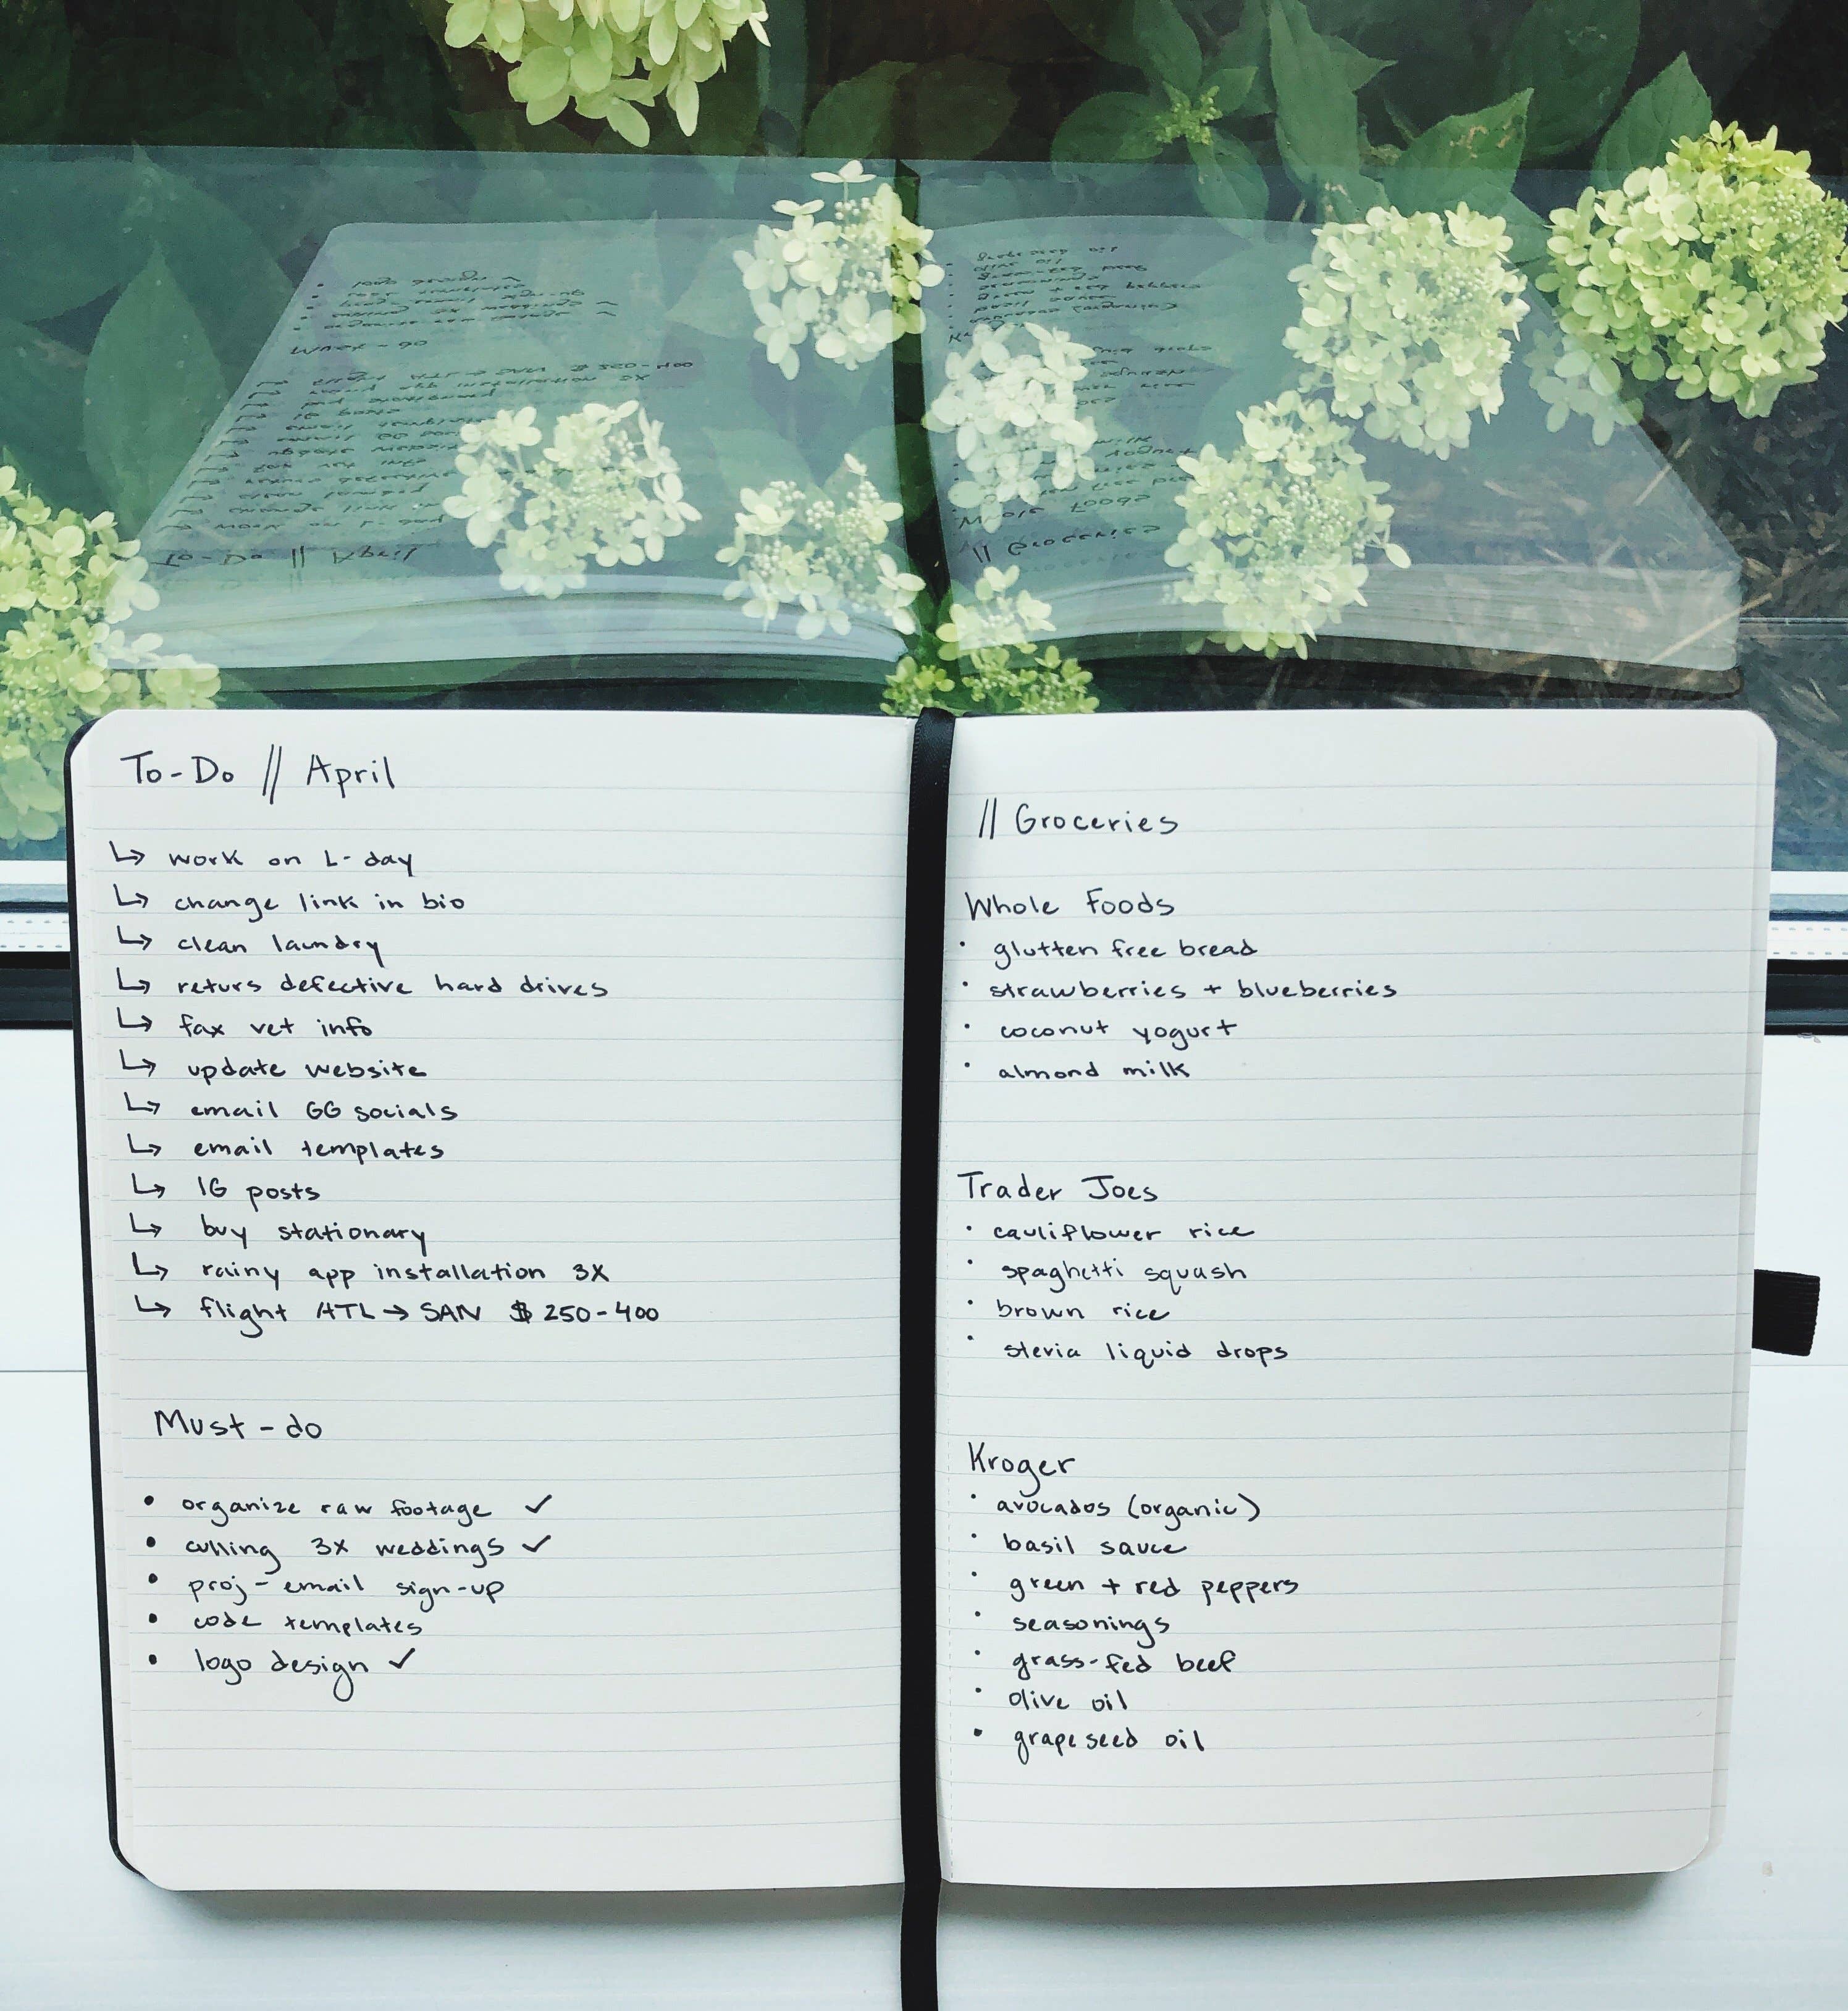 To-Do // April
↳ work on L-day
↳ change link in bio
↳ clean laundry
↳ returs defective hard drives
↳ fax vet info
↳ update website
↳ email GG socials
↳ email templates
↳ IG posts
↳ buy stationary
↳ rainy app installation 3X
↳ flight ATL → SAN $250-400
Must-do
• organize raw footage ✓
• culling 3x weddings ✓
• proj-email sign-up
• code templates
• logo design ✓
// Groceries
Whole Foods
• glutten free bread
• strawberries + blueberries
• coconut yogurt
• almond milk
Trader Joes
• cauliflower rice
• spaghetti squash
• brown rice
• stevia liquid drops
Kroger
• avocados (organic)
• basil sauce
• green + red peppers
• seasonings
• grass-fed beef
• olive oil
• grapeseed oil